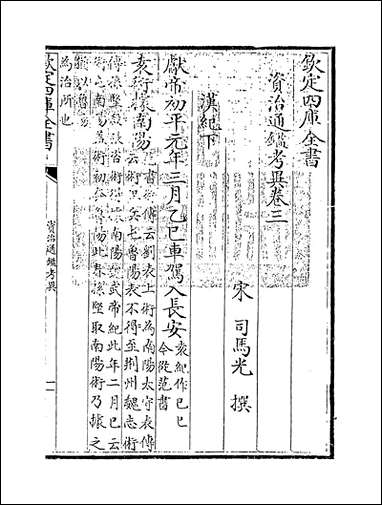 欽定四庫全書
資治通鑑考異卷三
宋 司馬光 撰
漢紀下
獻帝初平元年三月乙巳車駕入長安
袁紀作己巳
今從范書
袁術據南陽
範書術傳云劉表上術為南陽太守表傳
云術阻兵屯魯陽表不得至荆州魏志術
傳孫堅殺
術南陽
武帝紀此年二月已云
術屯南陽
術初
魯陽
孫堅取南陽術乃據之
為治所也
欽定四庫全書
資治通鑑考異
一